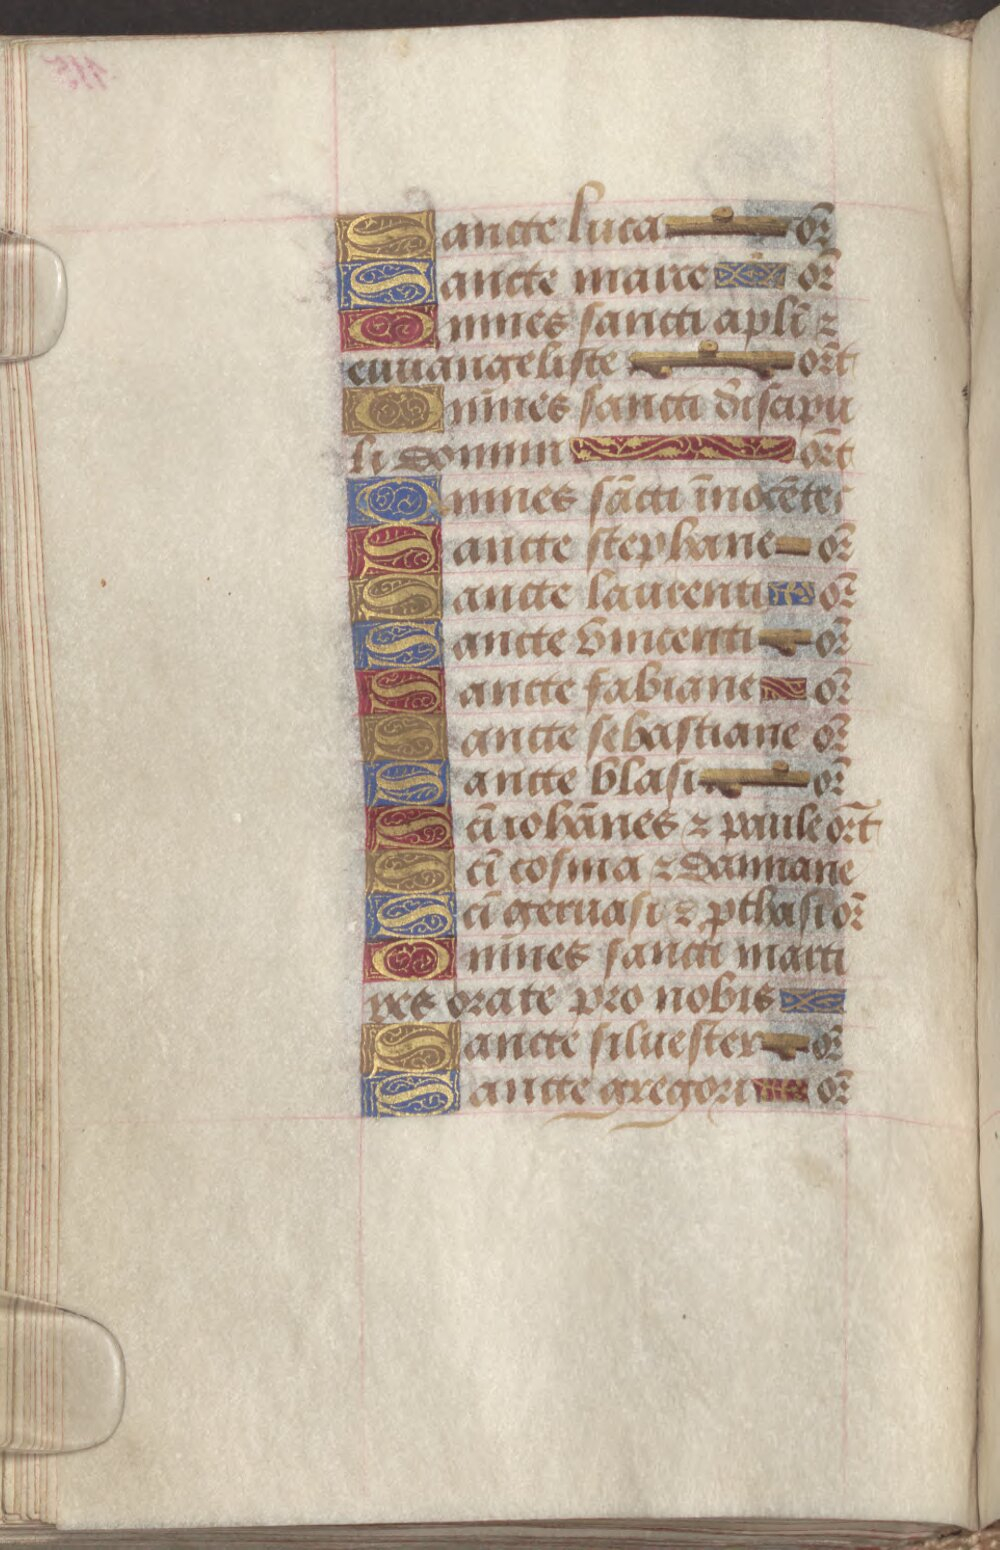 Sancte luca or̃
Sancte marce or̃
Omnes sancti apl̃i ⁊
euuangeliste or̃t
Om̃nes sancti discipu
li domini or̃t
Omnes sãcti ĩnocẽtes
Sancte stephane or̃
Sancte laurenti or̃
Sancte vincenti or̃
Sancte fabiane or̃
Sancte sebastiane or̃
Sancte blasi or̃
Sc̃i iohãnes ⁊ paule or̃t
Sc̃i cosma ⁊ damiane
Sc̃i geruasi ⁊ ꝓthasi or̃
Om̃nes sancti marti
res orate pro nobis
Sancte siluester or̃
Sancte gregori or̃